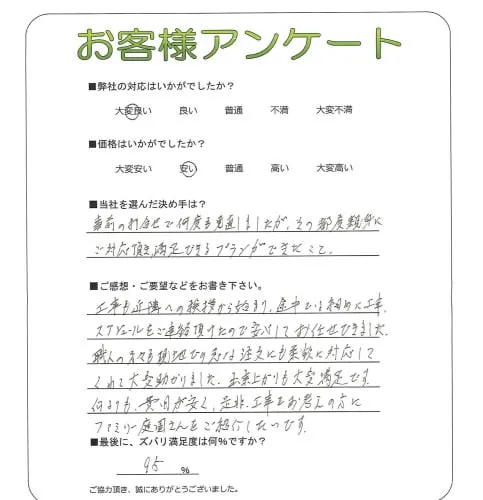 お客様アンケート
■弊社の対応はいかがでしたか？
大変良い 良い 普通 不満 大変不満
■価格はいかがでしたか？
大変安い 安い 普通 高い 大変高い
■当社を選んだ決め手は？
事前の打合せで何度も見直しましたが、その都度親身に
ご対応頂き満足できるプランができたこと。
■ご感想・ご要望などをお書き下さい。
工事も近隣への挨拶から始まり、途中では細めに工事
スケジュールをご連絡頂けたので安心してお任せできました
職人の方々も現地での急な注文にも柔軟に対応して
くれて大変助かりました。出来上がりも大変満足です。
何よりも、費用が安く、是非、工事をお考えの方に
ファミリー庭園さんをご紹介したいです。
■最後に、ズバリ満足度は何%ですか？
95 %
ご協力頂き、誠にありがとうございました。